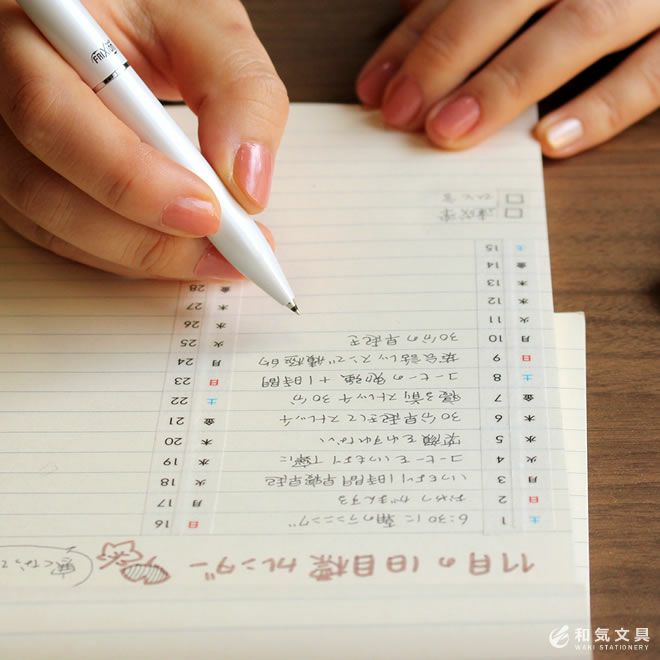 11月の1日目標カレンダー
寒くなって
土 1 6:30に朝のランニング
日 2 おやつがまんする
月 3 いつもより1時間早寝早起
火 4 コーヒーをいつもより丁寧に
水 5 笑顔をわすれない
木 6 30分早起きしてストレッチ
金 7 寝る前ストレッチ30分
土 8 コーヒーの勉強+1時間
日 9 英会話レッスンで積極的
月 10 30分の早起き
火 11
水 12
木 13
金 14
土 15
日 16
月 17
火 18
水 19
木 20
金 21
土 22
日 23
月 24
火 25
水 26
木 27
金 28
達成率
ひと言
FRIXION
和気文具
WAKI STATIONERY